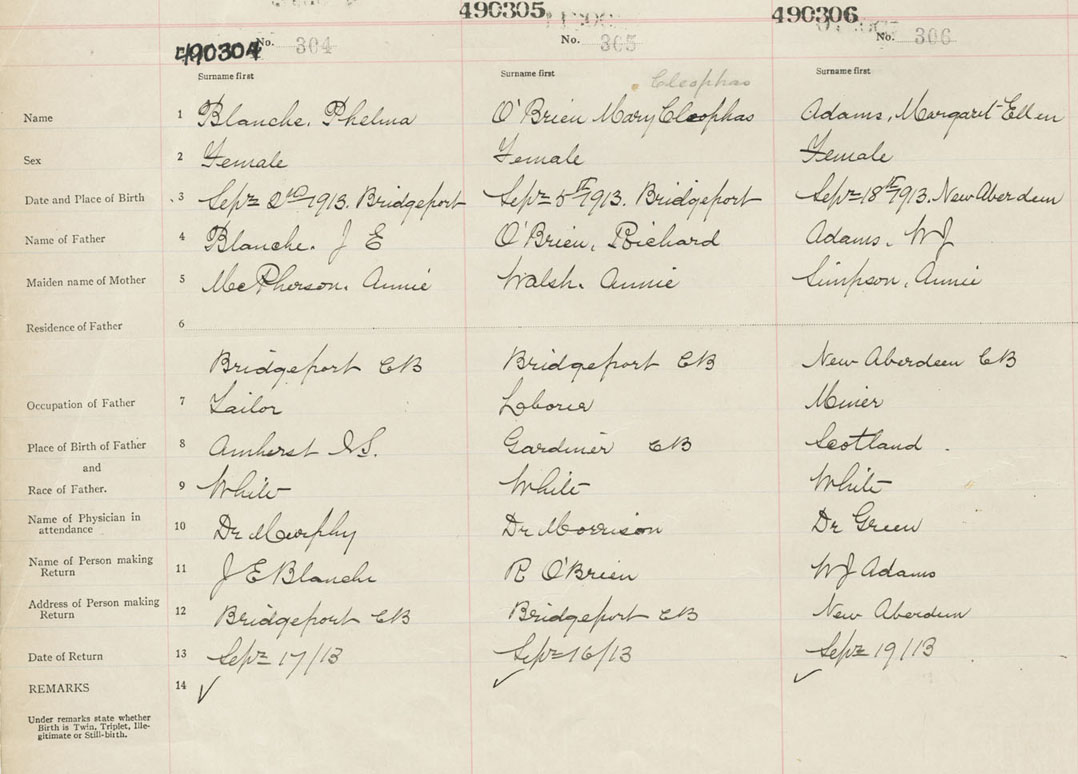 490304 490305 490306
No. 304 No. 305 No. 306
Surname first Surname first Surname first
Cleophas
Name 1 Blanche, Phelma O'Brien Mary Cleophas Adams, Margaret Ellen
Sex 2 Female Female Female
Date and Place of Birth 3 Sept 2nd 1913. Bridgeport Sept 5th 1913. Bridgeport Sept 18th 1913. New Aberdeen
Name of Father 4 Blanche. J E O'Brien, Richard Adams, W J
Maiden name of Mother 5 McPherson. Annie Walsh. Annie Simpson, Annie
Residence of Father 6
Bridgeport CB Bridgeport CB New Aberdeen CB
Occupation of Father 7 Tailor Laborer Miner
Place of Birth of Father 8 Amherst N.S. Gardiner CB Scotland
and
Race of Father. 9 White White White
Name of Physician in
attendance 10 Dr Murphy Dr Morrison Dr Green
Name of Person making
Return 11 J E Blanche R O'Brien W J Adams
Address of Person making
Return 12 Bridgeport CB Bridgeport CB New Aberdeen
Date of Return 13 Sept 17/13 Sept 16/13 Sept 19/13
REMARKS 14 ✓ ✓ ✓
Under remarks state whether
Birth is Twin, Triplet, Ille-
gitimate or Still-birth.